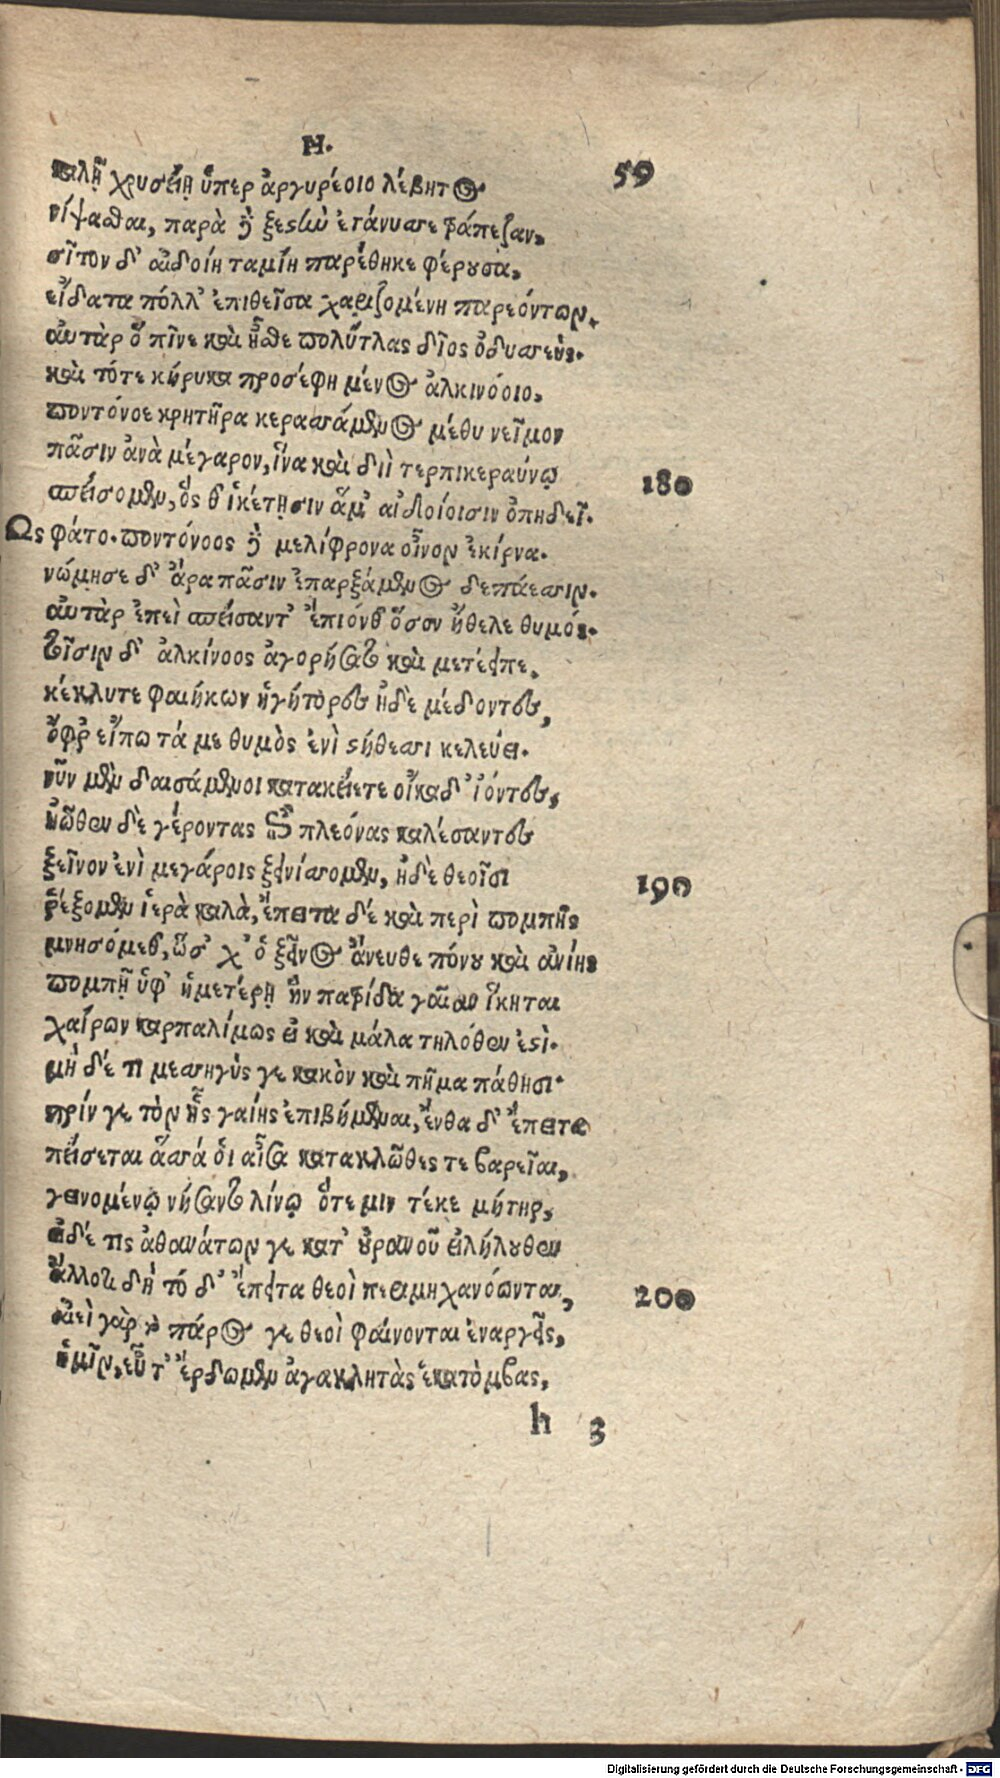 Η.
59
καλῇ χρυσείῃ ὑπὲρ ἀργυρέοιο λέβητος·
νίψασθαι, παρὰ δὲ ξεστὴν ἐτάνυσσε τράπεζαν,
σῖτον δ' αἰδοίη ταμίη παρέθηκε φέρουσα,
εἴδατα πόλλ' ἐπιθεῖσα χαριζομένη παρεόντων.
αὐτὰρ ὅ πῖνε καὶ ἦσθε πολύτλας δῖος ὀδυσσεύς.
καὶ τότε κήρυκα προσέφη μένος ἀλκινόοιο,
ποντόνοε κρητῆρα κερασσάμενος μέθυ νεῖμον
πᾶσιν ἀνὰ μέγαρον, ἵνα καὶ διῒ τερπικεραύνῳ
180
σπείσομεν, ὅς θ' ἱκέτῃσιν ἅμ' αἰδοίοισιν ὀπηδεῖ.
Ως φάτο. ποντόνοος δὲ μελίφρονα οἶνον ἐκίρνα.
νώμησε δ' ἄρα πᾶσιν ἐπαρξάμενος δεπάεσσιν.
αὐτὰρ ἐπεὶ σπεῖσαντ' ἔπιόνθ' ὅσον ἤθελε θυμός.
τοῖσιν δ' ἀλκίνοος ἀγορήσατο καὶ μετέειπε.
κέκλυτε φαιήκων ἡγήτορες ἠδὲ μέδοντες,
ὄφρ' εἴπω τά με θυμὸς ἐνὶ στήθεσσι κελεύει.
νῦν μὲν δαισάμενοι κατακείετε οἴκαδ' ἰόντες,
ἠῶθεν δὲ γέροντας ἐπὶ πλεόνας καλέσαντες
ξεῖνον ἐνὶ μεγάροις ξεινίσσομεν, ἠδὲ θεοῖσι
190
ῥέξομεν ἱερὰ καλὰ, ἔπειτα δέ καὶ περὶ πομπῆς
μνησόμεθ', ὥς' χ' ὁ ξεῖνος ἄνευθε πόνου καὶ ἀνίης
πομπῇ ὑφ' ἡμετέρῃ ἣν πατρίδα γαῖαν ἵκηται
χαίρων καρπαλίμως εἰ καὶ μάλα τηλόθεν ἐστὶ.
μὴ δέ τι μεσσηγύς γε κακὸν καὶ πῆμα πάθησι·
πρίν γε τὸν ἧς γαίης ἐπιβήμεναι, ἔνθα δ' ἔπειτα
πείσεται ἅσσά ὁι αἶσα κατακλῶθές τε βαρεῖαι,
γεινομένῳ νήσαντο λίνῳ ὅτε μιν τέκε μήτηρ,
εἰ δέ τις ἀθανάτων γε κατ' οὐρανοῦ εἰλήλουθεν
ἄλλο τι δὴ τό δ' ἔπειτα θεοὶ περιμηχανόωνται,
200
αἰεὶ γὰρ τὸ πάρος γε θεοὶ φαίνονται ἐναργεῖς,
ἡμῖν, εὖτ' ἔρδωμεν ἀγακλητὰς ἑκατόμβας,
h 3
Digitalisierung gefördert durch die Deutsche Forschungsgemeinschaft - DFG